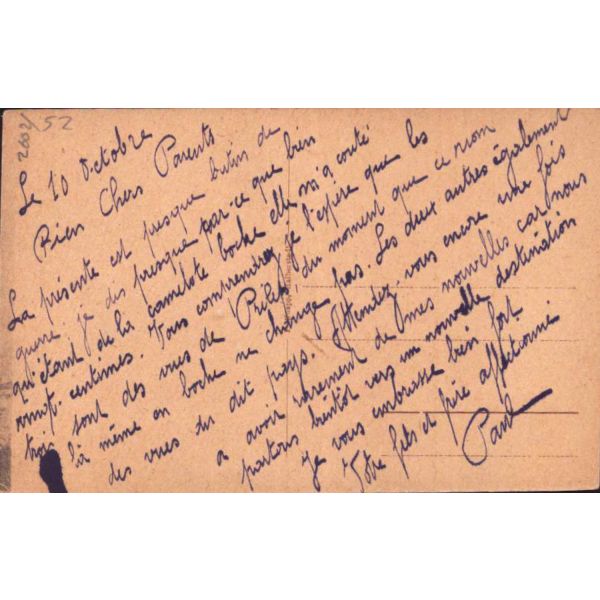 2602/52
Le 10 Octobre
Bien Chers Parents
La présente est presque butin de
guerre. je dis presque par-ce que bien
qu'étant de la camelote boche elle m'a couté
centimes. Vous comprendrez, je l'espère que les
trois sont des vues de du moment que ce nom
là même en boche ne change pas. Les deux autres également
des vues du dit pays. Attendez-vous encore une fois
a avoir rarement de mes nouvelles car nous
partons bientôt vers un nouvelle destination
Je vous embrasse bien fort
Votre fils et frère affectionné
Paul